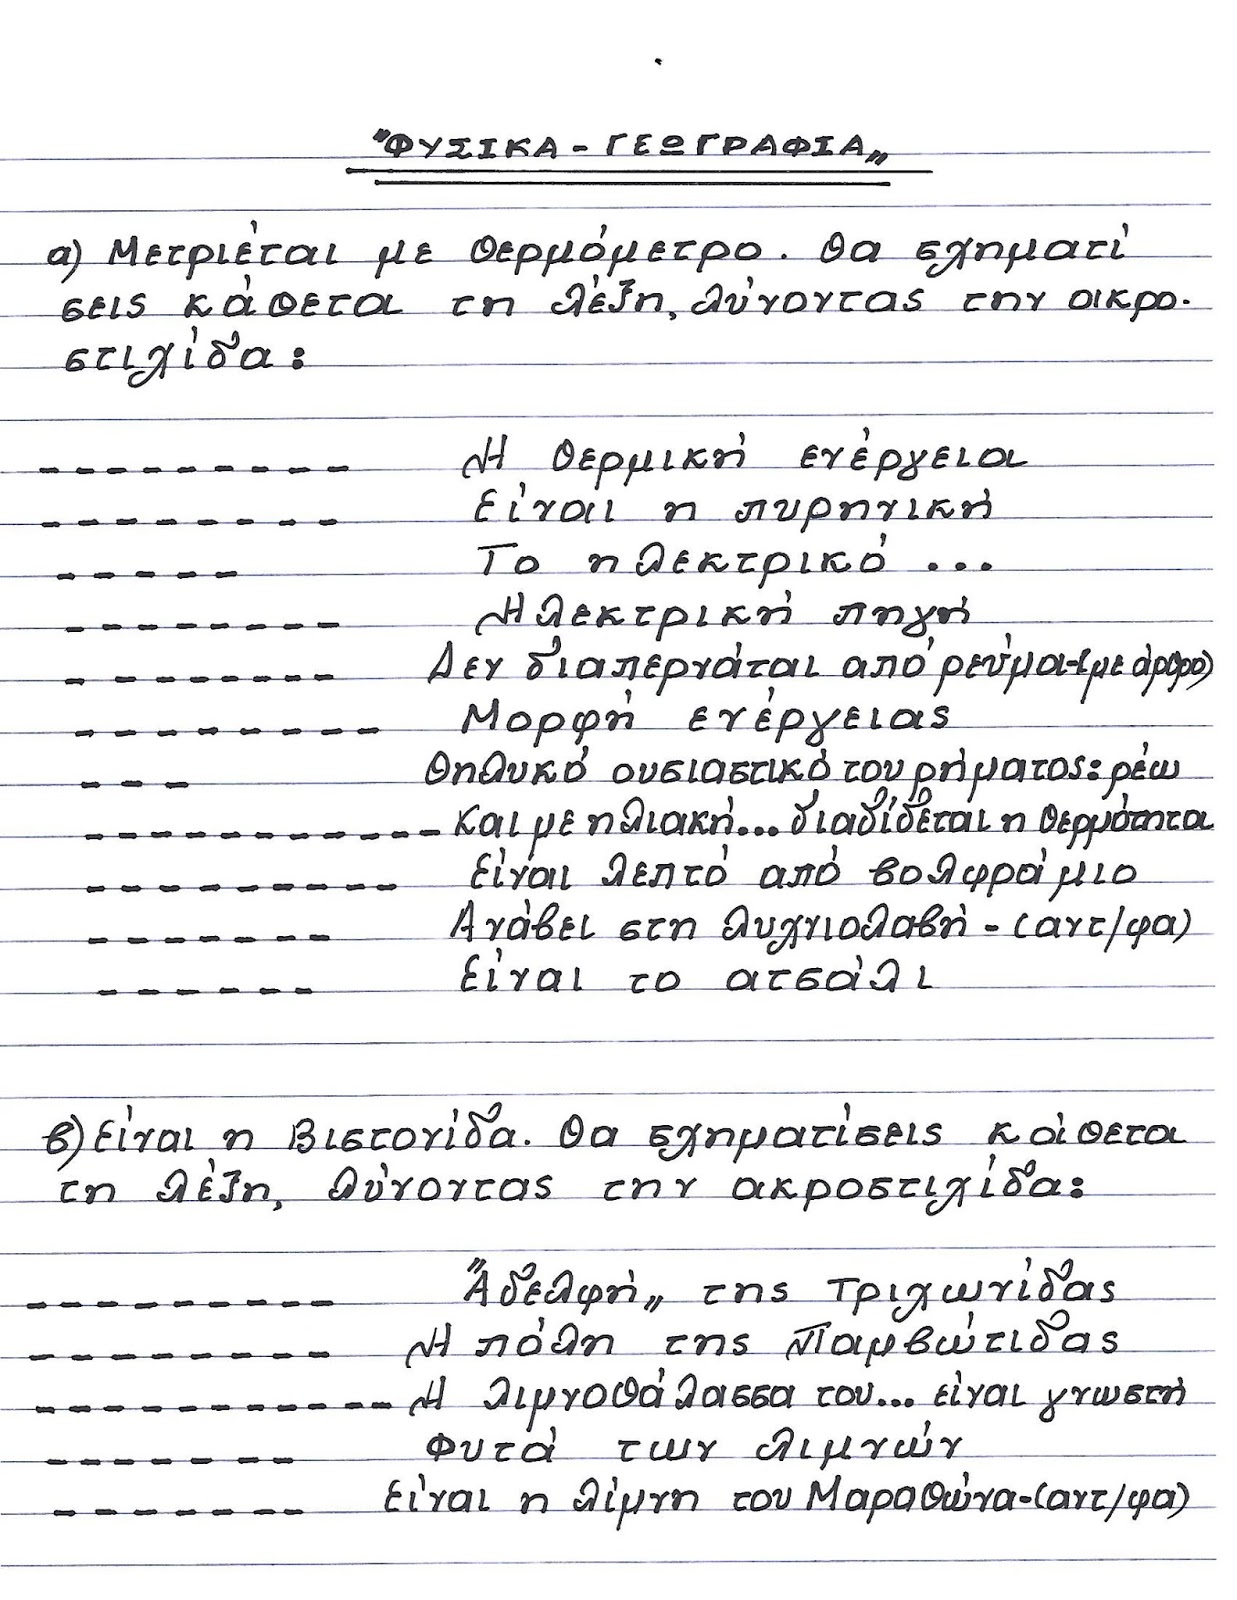 "ΦΥΣΙΚΑ - ΓΕΩΓΡΑΦΙΑ„
α) Μετριέται με θερμόμετρο. Θα σχηματί
σεις κάθετα τη λέξη, λύνοντας την ακρο-
στιχίδα:
_ _ _ _ _ _ _ _ _ Η θερμική ενέργεια
_ _ _ _ _ _ _ _ Είναι η πυρηνική
_ _ _ _ _ Το ηλεκτρικό ...
_ _ _ _ _ _ _ _ Ηλεκτρική πηγή
_ _ _ _ _ _ _ Δεν διαπερνάται από ρεύμα-(με άρθρο)
_ _ _ _ _ _ _ _ _ Μορφή ενέργειας
_ _ _ Θηλυκό ουσιαστικό του ρήματος: ρέω
_ _ _ _ _ _ _ _ _ _ _ _ Και με ηλιακή... διαδίδεται η θερμότητα
_ _ _ _ _ _ _ _ _ Είναι λεπτό από βολφράμιο
_ _ _ _ _ _ _ Ανάβει στη λυχνιολαβή - (αντ/φα)
_ _ _ _ _ _ Είναι το ατσάλι
β) Είναι η Βιστονίδα. Θα σχηματίσεις κάθετα
τη λέξη, λύνοντας την ακροστιχίδα:
_ _ _ _ _ _ _ _ _ "Αδελφή„ της Τριχωνίδας
_ _ _ _ _ _ _ _ _ Η πόλη της Παμβώτιδας
_ _ _ _ _ _ _ _ _ _ _ _ Η λιμνοθάλασσα του... είναι γνωστή
_ _ _ _ _ _ _ Φυτά των λιμνών
_ _ _ _ _ _ _ Είναι η λίμνη του Μαραθώνα-(αντ/φα)